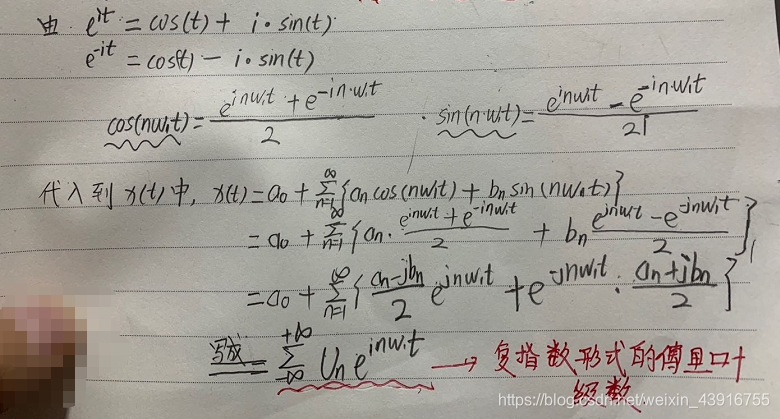 由 e^{it} = cos(t) + i·sin(t)
e^{-it} = cos(t) - i·sin(t)
cos(nw₁t) = \frac{e^{inw₁t} + e^{-in·w₁t}}{2} · sin(n·w₁t) = \frac{e^{inw₁t} - e^{-in·w₁t}}{2i}
代入到 x(t) 中, x(t) = a₀ + \sum_{n=1}^{∞} {an cos(nw₁t) + bn sin(nw₀t)}
= a₀ + \sum_{n=1}^{∞} {an · \frac{e^{inw₁t} + e^{-inw₁t}}{2} + bn \frac{e^{jnw₁t} - e^{-jnw₁t}}{2}}
= a₀ + \sum_{n=1}^{∞} {\frac{an - jbn}{2} e^{jnw₁t} + e^{-jnw₁t} · \frac{an + jbn}{2}}
写成 \sum_{-∞}^{+∞} Un e^{inw₁t} → 复指数形式的傅里叶
级数
https://blog.csdn.net/weixin_43916755